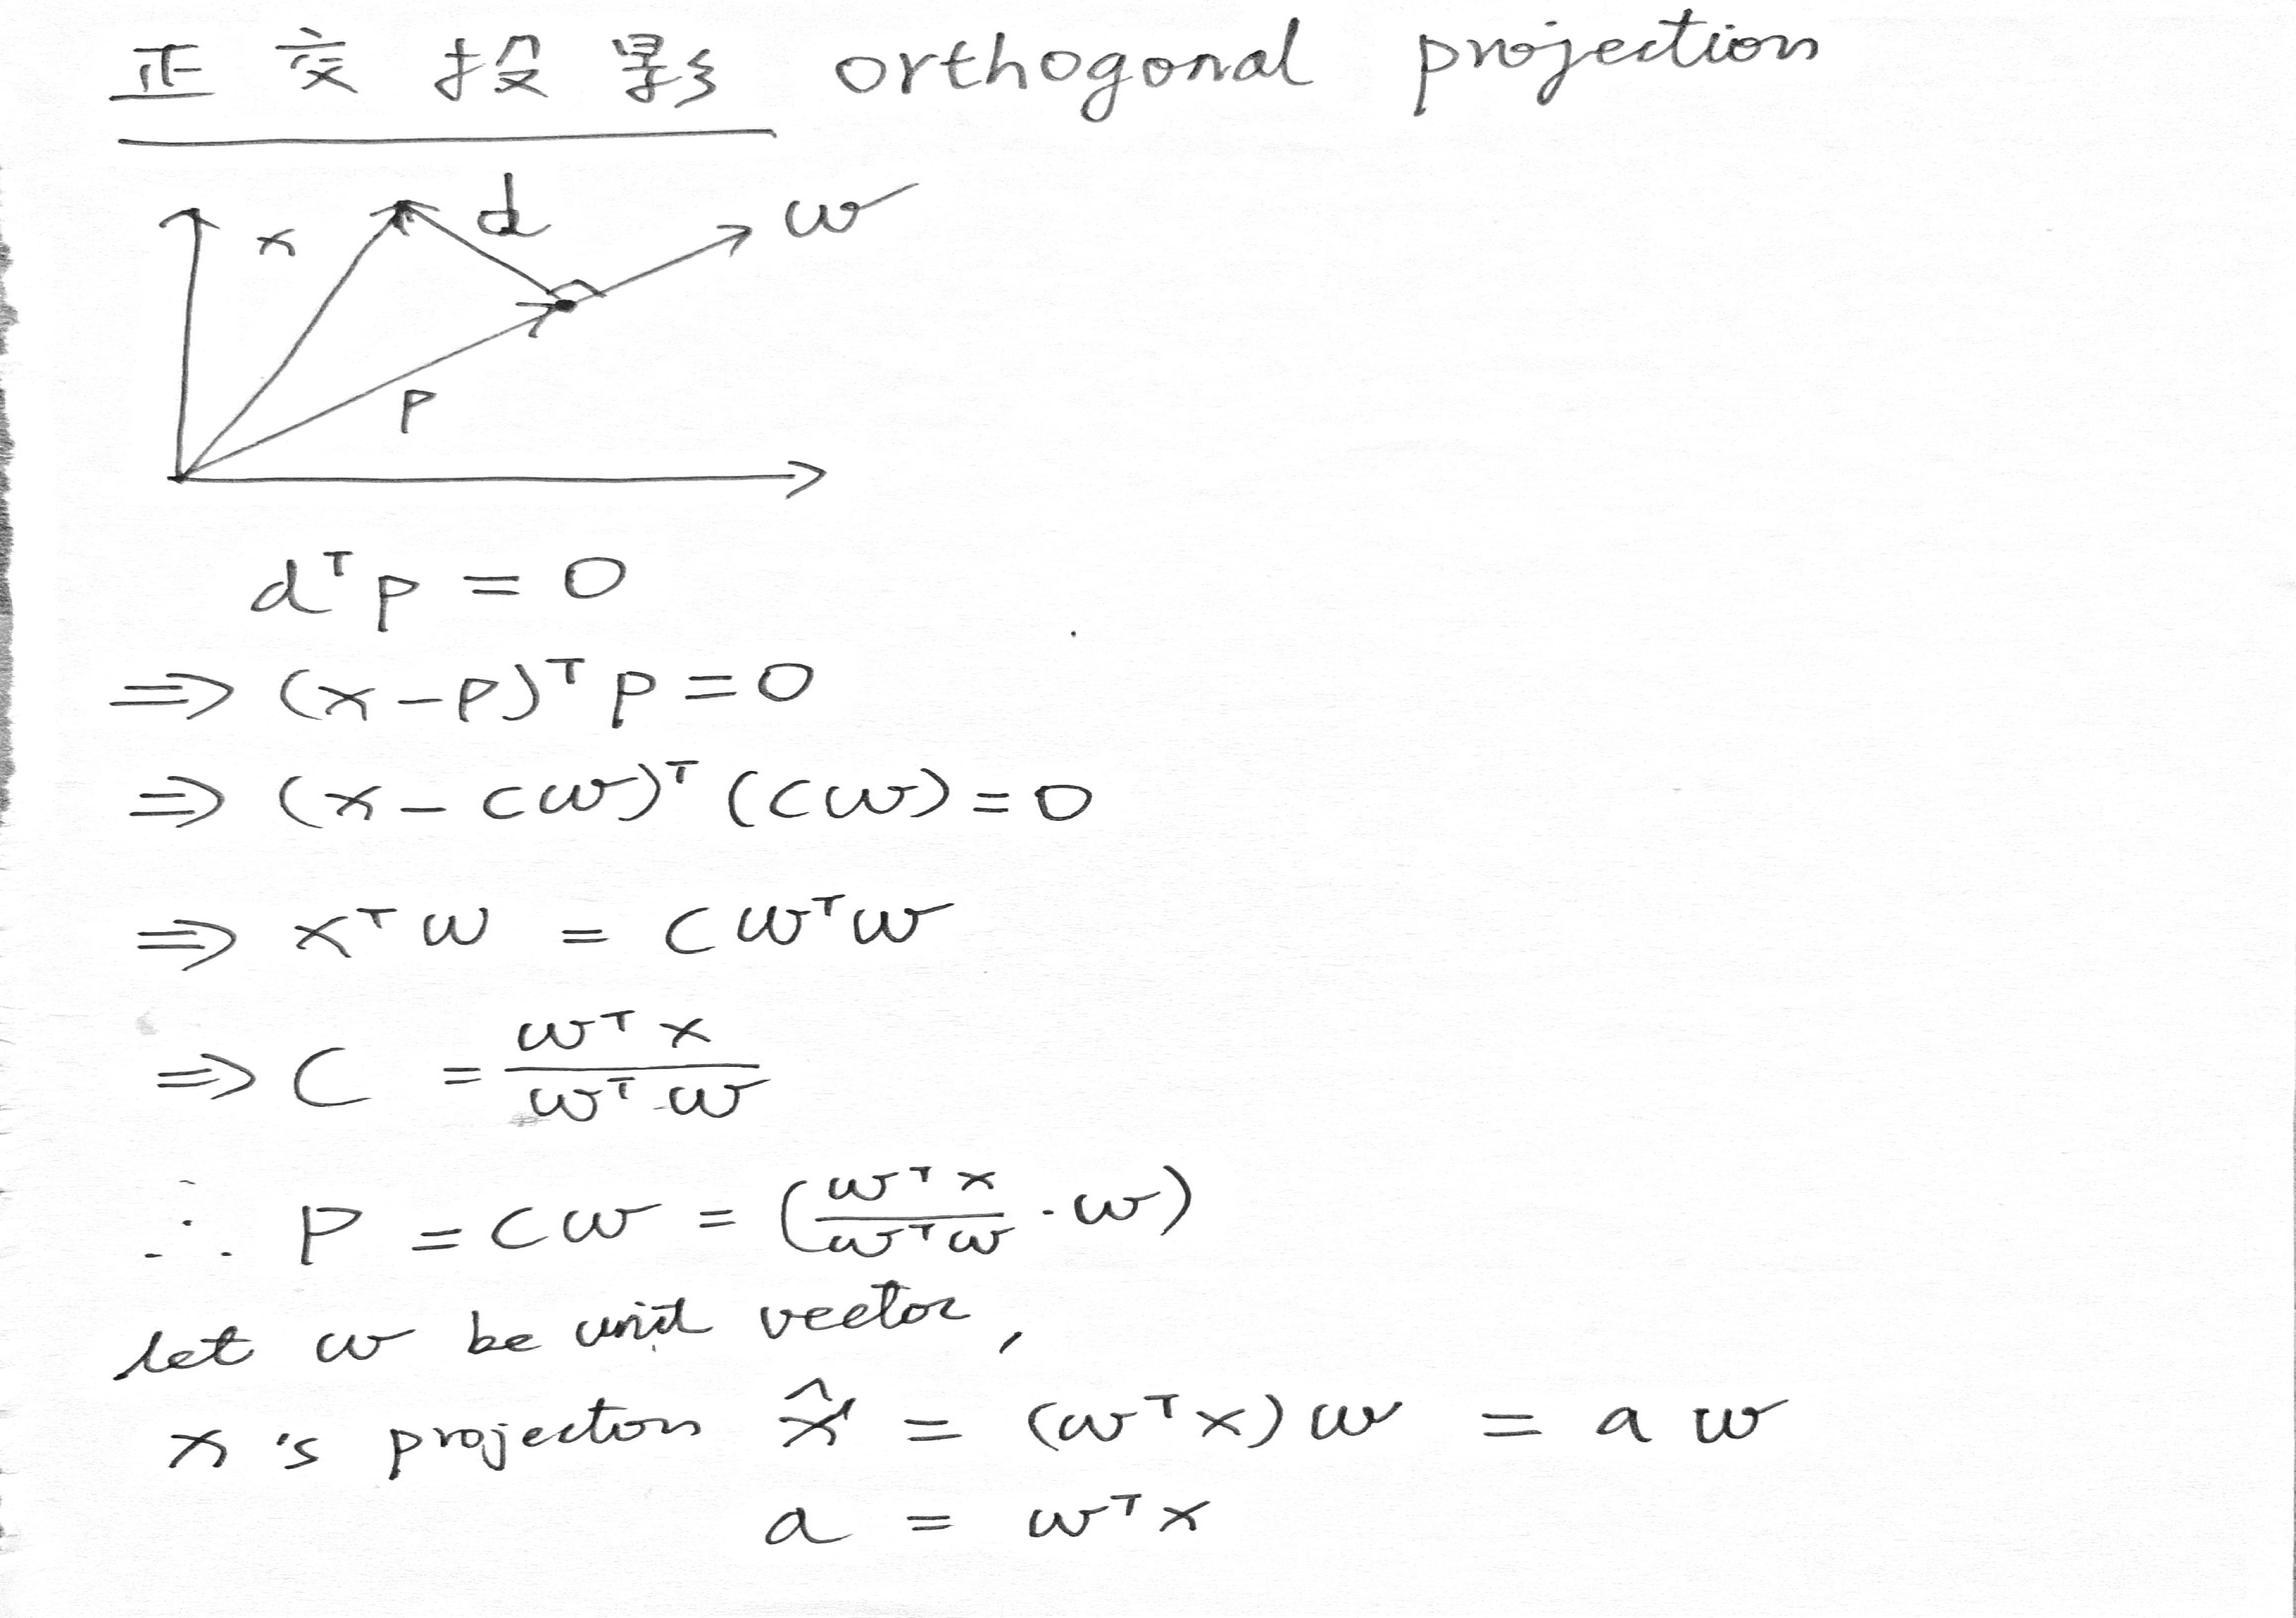 正交投影 orthogonal projection
x d w
p
dᵀp = 0
⇒ (x-p)ᵀp = 0
⇒ (x-cw)ᵀ(cw) = 0
⇒ xᵀw = cwᵀw
⇒ C = wᵀx / wᵀw
∴ P = cw = (wᵀx / wᵀw · w)
let w be unit vector,
x's projecton x̂ = (wᵀx)w = a w
a = wᵀx